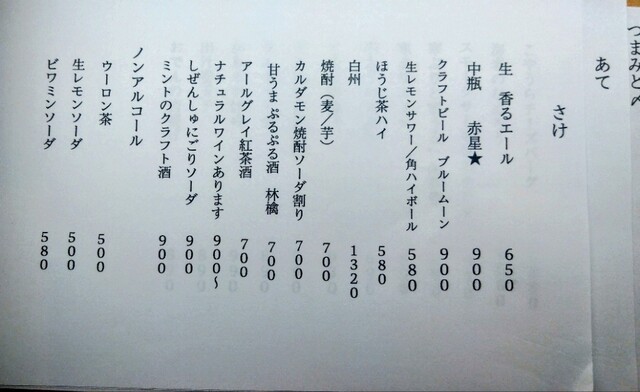 つまみどの
あて
さけ
生　香るエール　650
中瓶　赤星★　900
クラフトビール　ブルームーン　900
生レモンサワー／角ハイボール　580
ほうじ茶ハイ　580
白州　1320
焼酎（麦／芋）　700
カルダモン焼酎ソーダ割り　700
甘うま ぷるぷる酒　林檎　700
アールグレイ紅茶酒　700
ナチュラルワインあります　900〜
しぜんしゅにごりソーダ　900
ミントのクラフト酒　900
ノンアルコール
ウーロン茶　500
生レモンソーダ　500
ビワミンソーダ　580